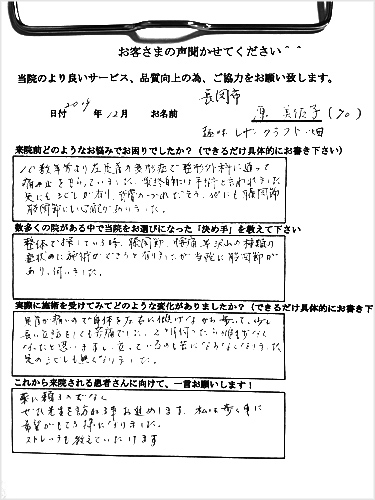 お客さまの声聞かせてください^^
当院のより良いサービス、品質向上の為、ご協力をお願い致します。
長岡市
日付 2019年12月 お名前 原 美佐子(70)
趣味 レザークラフト・畑
来院前どのようなお悩みでお困りでしたか?(できるだけ具体的にお書き下さい)
10数年前より左足首の変形症で整形外科に通って
痛み止をもらっていました。 手術と言われました
股関節
股関節にも心配がありました。
数多くの院がある中で当院をお選びになった「決め手」を教えて下さい
整体で探している時、膝関節、腰痛、
症状めに施術ができうとなりましたが当院に股関節が
あり、伺いました。
実際に施術を受けてみてどのような変化がありましたか?(できるだけ具体的にお書き下
足首が痛いので身体を左右に傾けながら歩って、少し
長い立話もとても苦痛でした。
なったと思いますし、立っているのも苦にならなくなりました
先のことも無くなりました。
これから来院される患者さんに向けて、一言お願いします!
薬に頼るのでなく
ぜひ先生を訪ねる事お進めします。私は歩く事に
希望がもてる様になりました。
ストレッチも教えていただけます